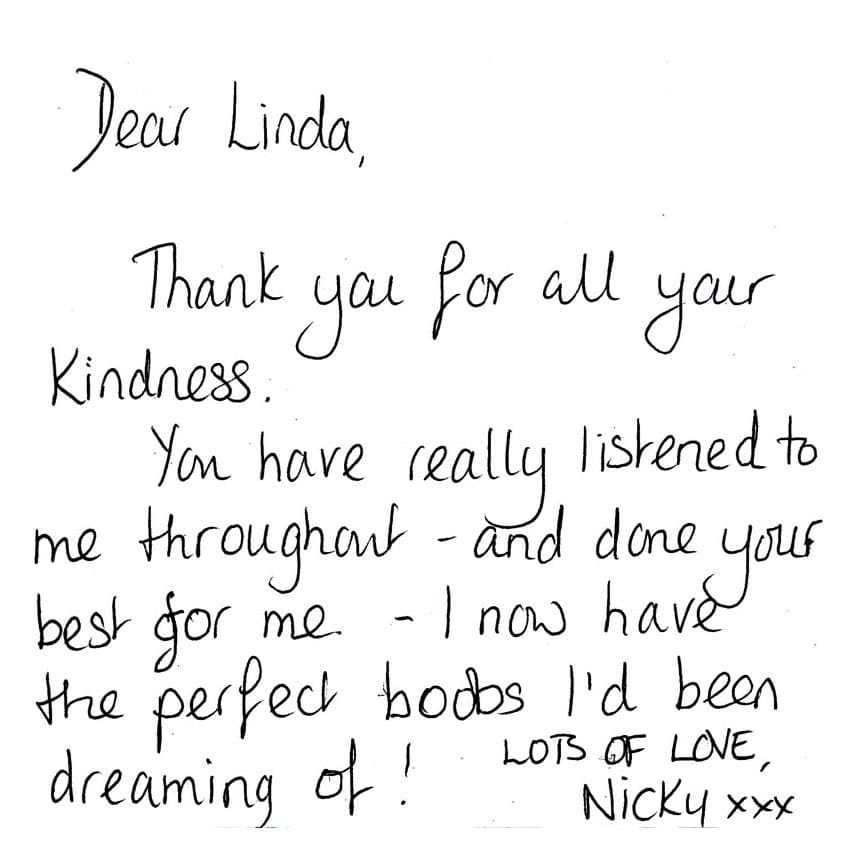 Dear Linda,
Thank you for all your
Kindness.
You have really listened to
me throughout - and done your
best for me - I now have
the perfect boobs I'd been
dreaming of!
LOTS OF LOVE,
Nicky xxx